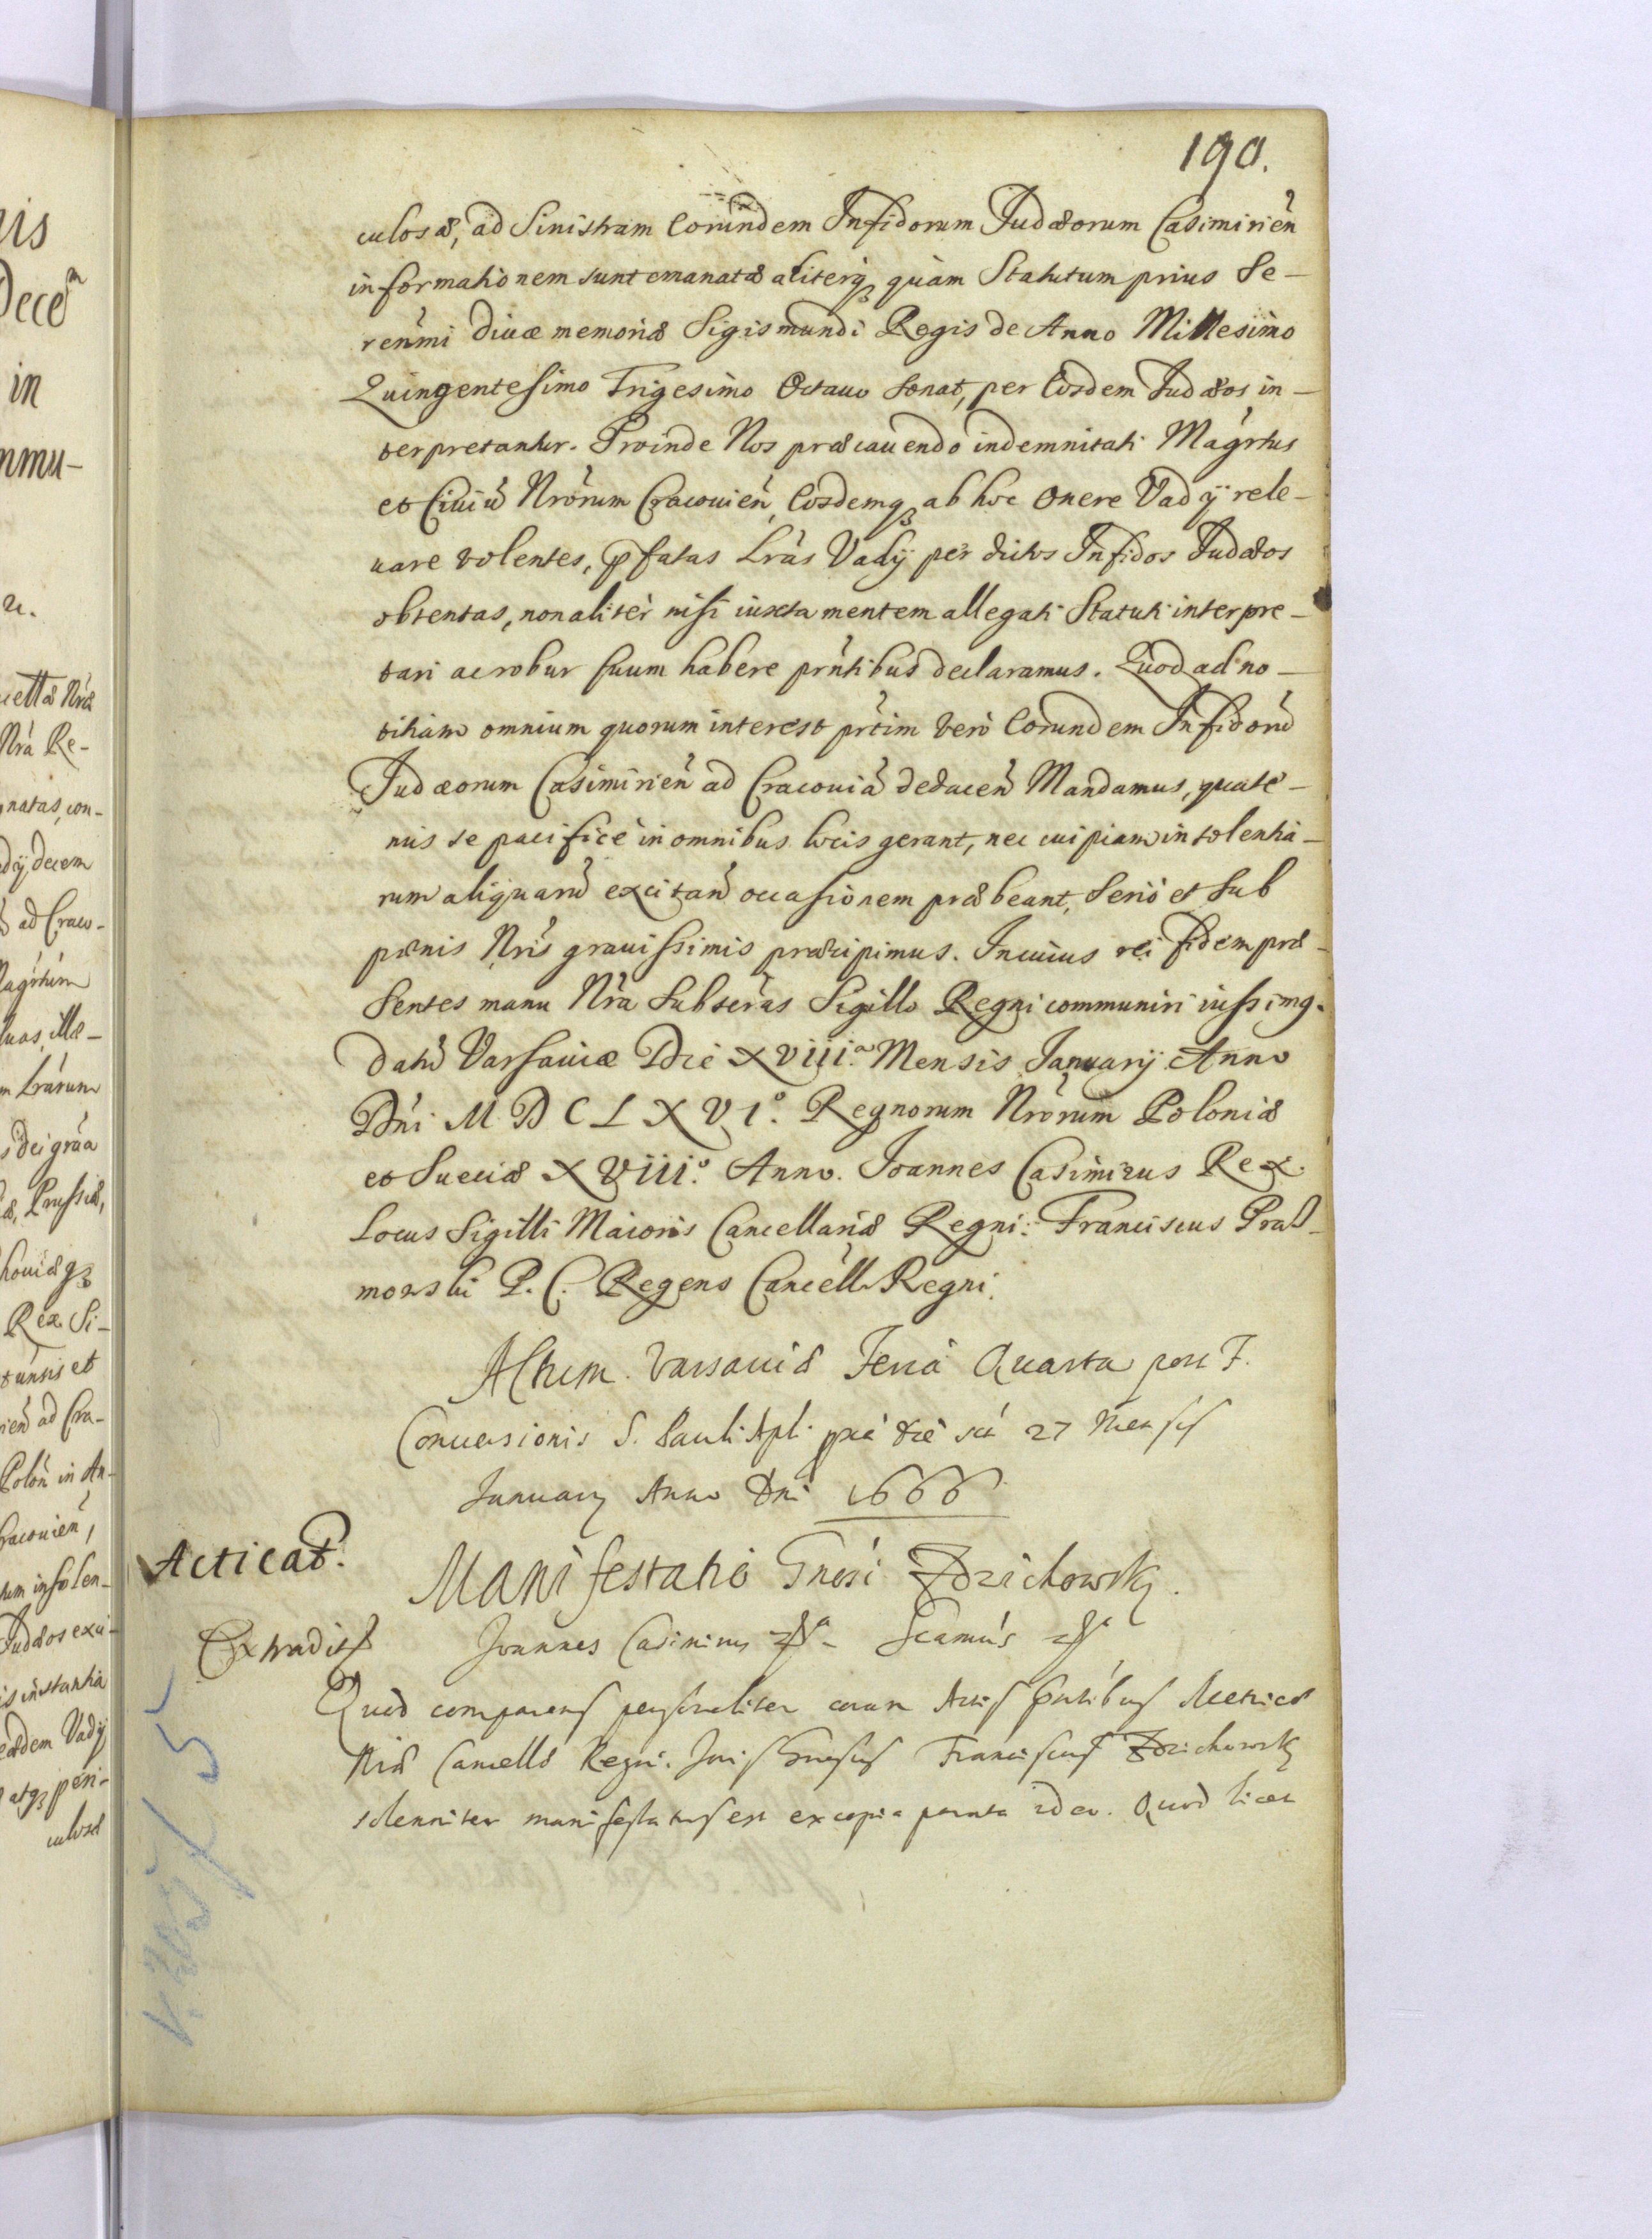 190.
culosæ, ad Sinistram Eorundem Infidorum Judæorum Casimirień
informationem sunt emanatæ aliterq̃ quàm Statutum prius Se-
renm̃i Diuæ memoriæ Sigismundi Regis de Anno Millesimo
Quingentesimo Trigesimo Octauo Sonat, per Eosdem Judæos in-
terpretantur. Proinde Nos præcauendo indemnitati Mágrtus
et Ciuiũ Nrõrum Cracouień, Eosdemq̃ ab hoc Onere Vadÿ rele-
uare volentes, p̃fatas Lrãs Vadÿ per dictos Infidos Judæos
obtentas, non alitèr nisi iuxta mentem allegati Statuti interpre-
tari ac robur suum habere prñtibus declaramus. Quod ad no-
titiam omnium quorum interest prt̃im verò Eorundem Infidorũ
Judæorum Casimirień ad Cracouiã dedaceñ Mandamus, quate-
nus se pacificè in omnibus locis gerant, nec cuipiam insolentia-
rum aliquarũ excitañ occasionem præbeant, Seriò et Sub
pœnis Nrĩs grauissimis præcipimus. In cuius rei fidem præ-
Sentes manu Nrã Subscrãs Sigillo Regni communiri iussimq.
Datũ Varsauiæ Die XVIII.a Mensis January Anno
Dñi MDCLXVI.o Regnorum Nrõrum Poloniæ
et Sueciæ XVIII.o Anno. Joannes Casimirus Rex.
Locus Sigilli Maioris Cancellariæ Regni. Franciscus Praż-
mowski P. C. Regens Cancell. Regni.
Actum Varsauiæ Feria Quarta post F.
Conuersionis S. Pauli Apli. die 27 Mensis
January Anno Dni 1666
Acticat.
Manifestatio Gnosi Zdzichowsky.
Extradit
Joannes Casimirus
Quod comparens personaliter coram Actis p̃ntibus Metricæ
Nræ Cancellæ Regni. Franciscus Zdzichowsky
solenniter manifestatus est ex copia Quod licet
V. 305/5